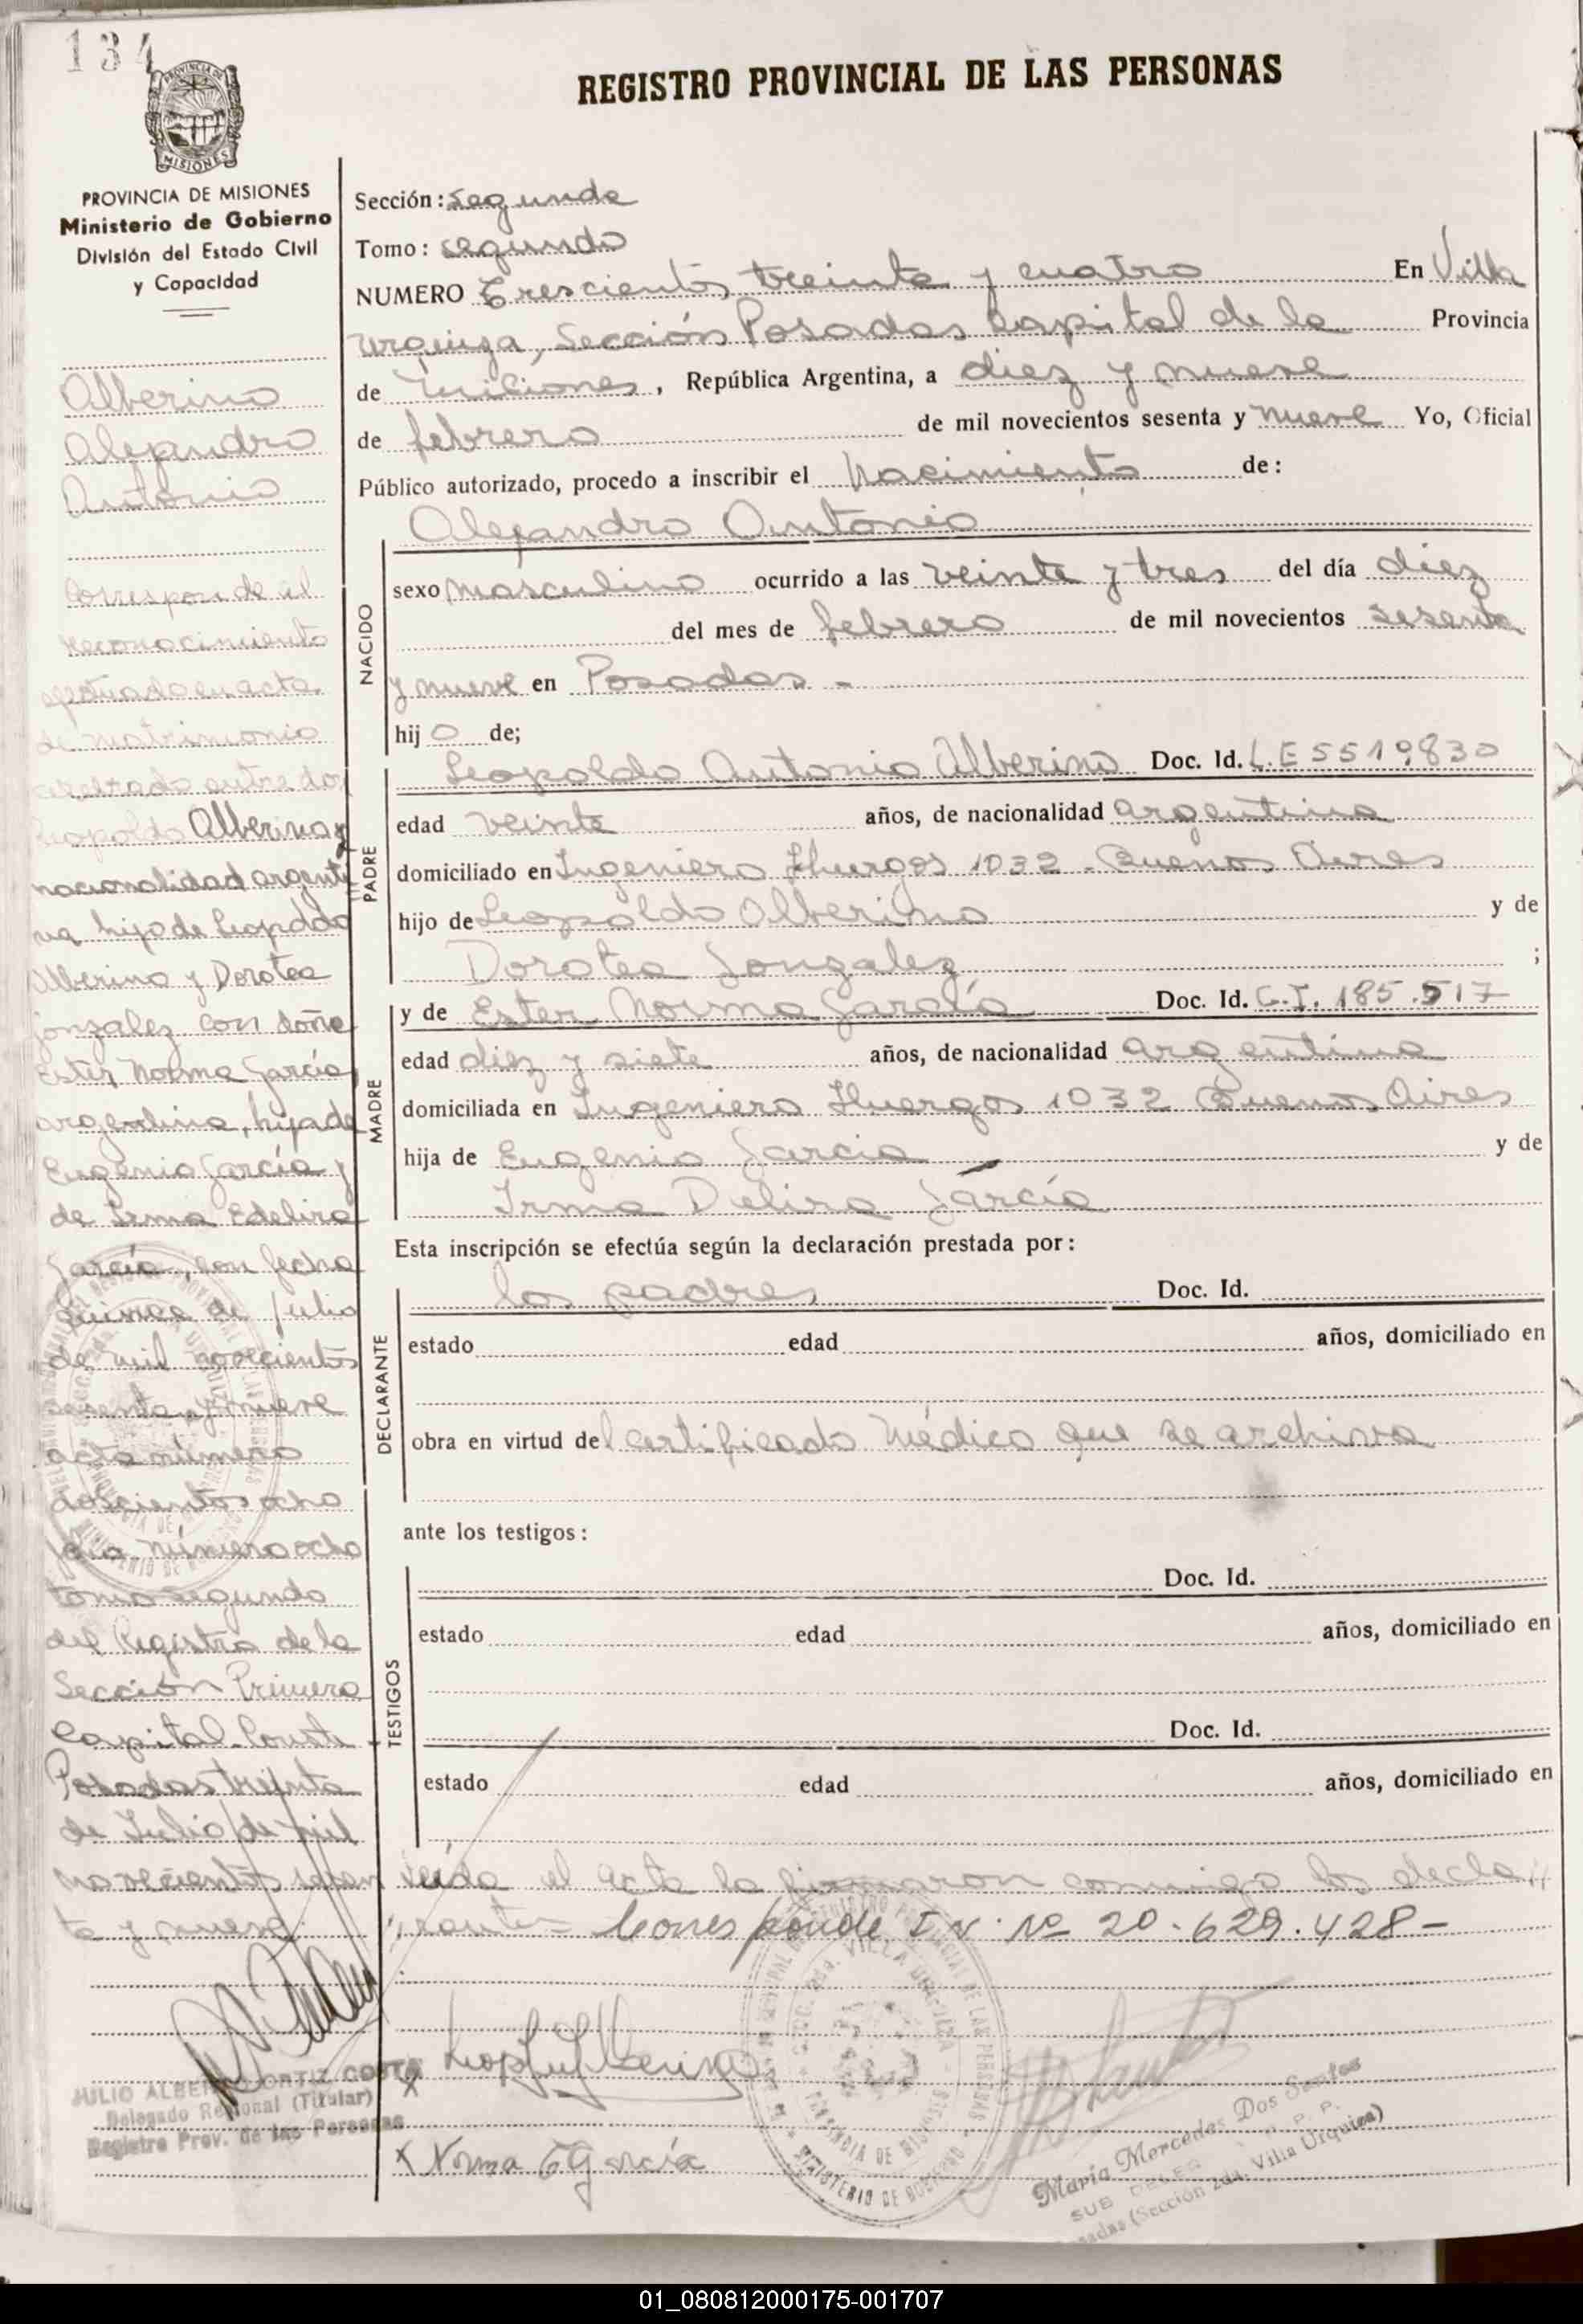 134
REGISTRO PROVINCIAL DE LAS PERSONAS
PROVINCIA DE MISIONES
Ministerio de Gobierno
División del Estado Civil
y Capacidad
Alberino
Alejandro
Antonio
Corresponde al
reconocimiento
efectuado en acta
de matrimonio
celebrado entre don
Leopoldo Alberino y
nacionalidad argenti
na hijo de Leopoldo
Alberino y Dorotea
Jonzalez con doña
Ester Norma García
argentina, hija de
Eugenio García y
de Irma Edelira
García, con fecha
quince de julio
de mil novecientos
sesenta y nueve
acta número
doscientos ocho
folio número ocho
tomo segundo
del Registro de la
Sección Primera
Capital. Const.
Posadas treinta
de Julio de mil
novecientos sesen
ta y nueve.
JULIO ALBERTO ORTIZ COSTA
Delegado Regional (Titular)
Registro Prov. de las Personas
Sección: segunda
Tomo: segundo
NUMERO Trescientos treinta y cuatro En Villa
Urquiza, Sección Posadas Capital de la Provincia
de Misiones, República Argentina, a diez y nueve
de febrero de mil novecientos sesenta y nueve Yo, Oficial
Público autorizado, procedo a inscribir el Nacimiento de:
Alejandro Antonio
NACIDO
sexo masculino ocurrido a las veinte y tres del día diez
del mes de febrero de mil novecientos sesenta
y nueve en Posadas -
hijo de;
PADRE
Leopoldo Antonio Alberino Doc. Id. L.E 5519830
edad veinte años, de nacionalidad argentina
domiciliado en Ingeniero Huergos 1032 - Buenos Aires
hijo de Leopoldo Alberino y de
Dorotea Jonzalez ;
MADRE
y de Ester Norma García Doc. Id. C.I. 185.517
edad diez y siete años, de nacionalidad argentina
domiciliada en Ingeniero Huergos 1032 Buenos Aires
hija de Eugenio Garcia y de
Irma Delira García
Esta inscripción se efectúa según la declaración prestada por:
DECLARANTE
los padres Doc. Id.
estado edad años, domiciliado en
obra en virtud del certificado médico que se archiva
ante los testigos:
TESTIGOS
Doc. Id.
estado edad años, domiciliado en
Doc. Id.
estado edad años, domiciliado en
Leída el acta la firmaron conmigo los decla//
//rantes = Corresponde I.N. Nº 20.629.428-
X Norma E García
María Mercedes Dos Santos
SUB DELEG
(Sección 2da. Villa Urquiza)
01_080812000175-001707